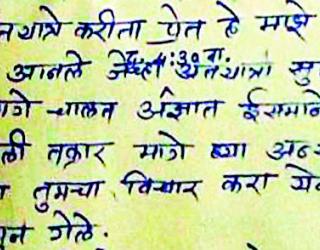 नयात्रे करीता प्रेत हे माझे
आनले जेव्हा अंतयात्रा सु
मागे चालत अज्ञात ईसमाने
ली तक्रार मागे घ्या अन्य
तुमचा विचार करा ये
न गेले.